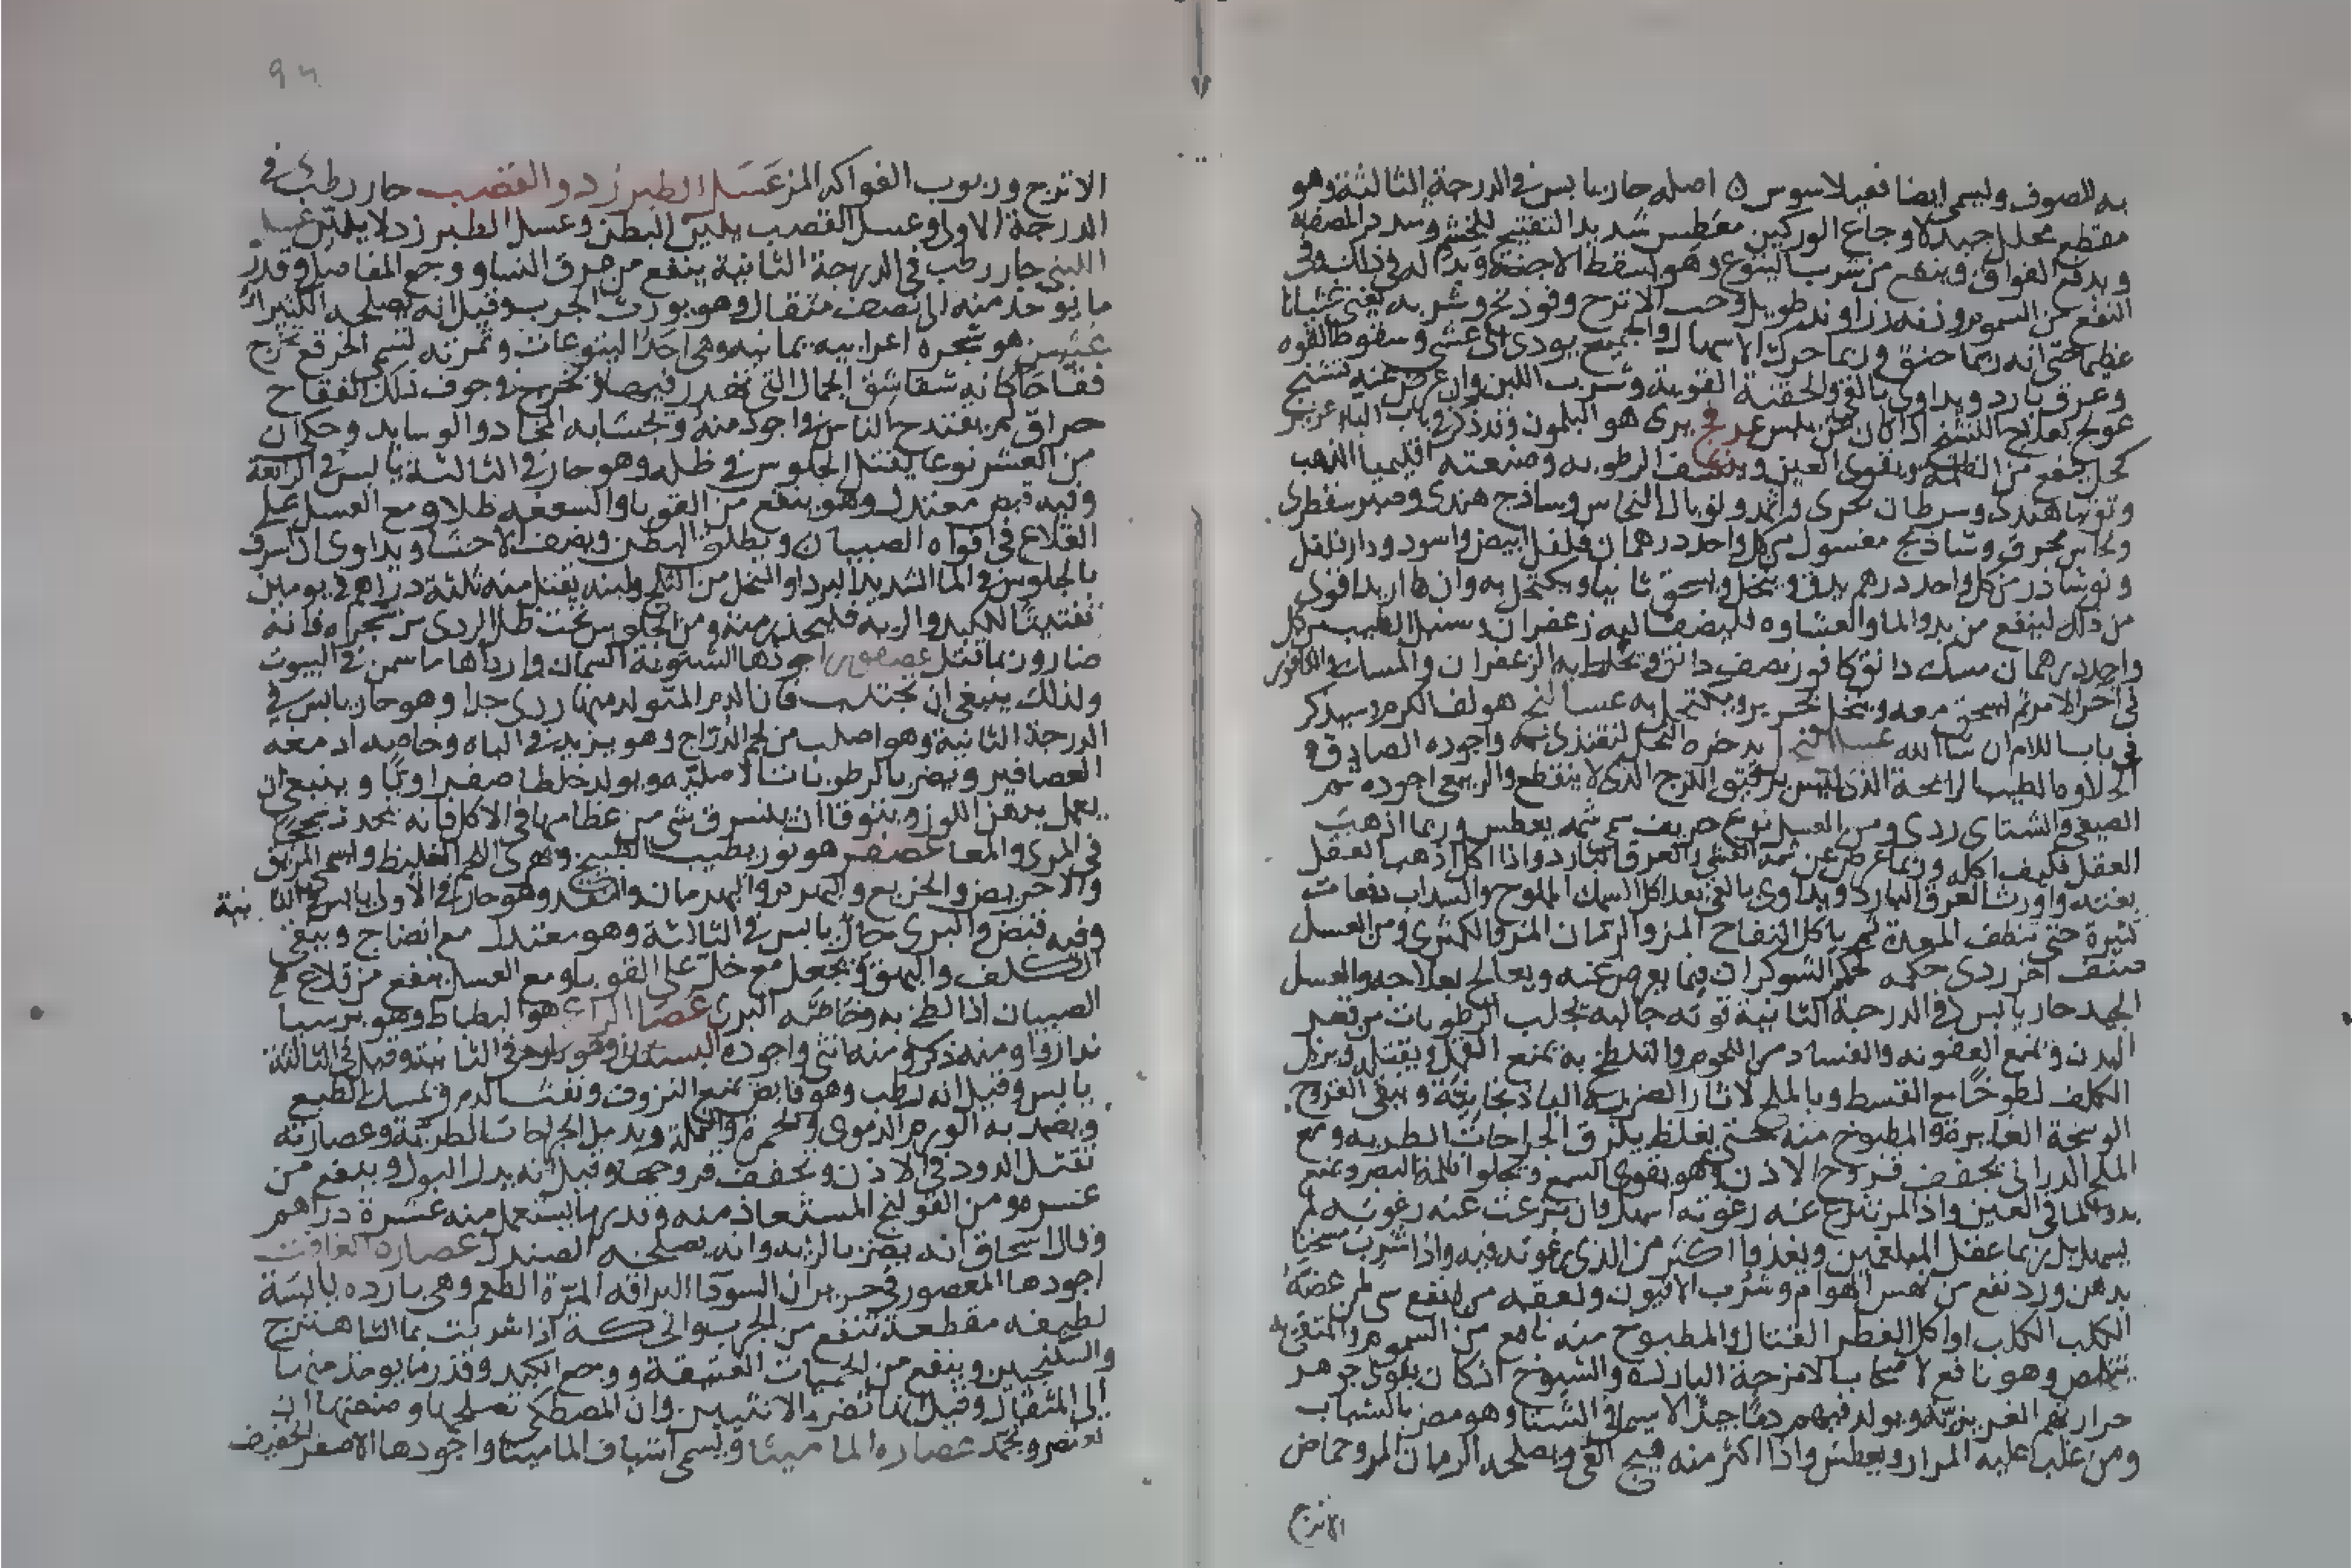 به الصوف وليسمى ايضا فعيلاسوس اصله حار يابس في الدرجة الثالثة وهو
مقطع محلل جيد لاوجاع الوركين معطس شديد التفتيح للخشم وسدد المصفاة
ويدفع الفواق وينفع من شرب اليتوع وهو يسقط الاجنة
النفع من السموم زراوند طويل وحب الاترج وفوذنج وشربه
عظيما حتى انه ربما خنق وربما حرك الاسهال والجميع يودى الى غشى وسقوط القوه
وعرق بارد ويداوى بالقى والحقنة القوية وشرب اللبن وان عرض عنه تشنج
عولج بعلاج التشنج اذا كان عن يبس
كحل ينفع من الظلمة ويقوى العين وينشف الرطوبه وصنعته اقليميا الذهب
وتوتيا هندى وسرطان بحرى واثمد وتوبال النحاس وساذج هندى وصبر سقطرى
ونحاس محرق وشاذنج مغسول من كل واحد درهمان فلفل ابيض واسود ودار فلفل
ونوشادر من كل واحد درهم يدق وينخل ويسحق ثانيا ويكتحل به وان اريد اقوى
من ذلك لينفع من بدو الما والغشاوه فليضف اليه زعفران وسنبل الطيب من كل
واحد درهمان مسك دانق كافور نصف دانق ويخلط به الزعفران والمسك والكافور
في اخر الامر ثم يسحق معه وينخل بحرير ويكتحل به عسالنج هو لف الكرم وسيذكر
في باب اللام ان شا الله عسل النحل يدخره النحل لتغتذى به واجوده الصادق
الحلاوه الطيب الرائحة الذى ليس برقيق اللزج الذى لا ينقطع والربيعى اجوده ثم
الصيفى والشتاى ردى ومن العسل نوع حريف سمى شمه يعطس وربما اذهب
العقل فكيف اكله وربما عرض عن شمه الغشى والعرق البارد واذا اكل اذهب العقل
بغتة واورث العرق البارد ويداوى بالقى بعد اكل السمك المملوح والسداب دفعات
كثيرة حتى تنظف المعدة ثم ياكل التفاح المز والرمان المز والكمثرى ومن العسل
صنف اخر ردى حكمه حكم الشوكران فيما يعرض عنه ويعالج بعلاجه والعسل
الجيد حار يابس في الدرجة الثانية قوته جاليه تجلب الرطوبات من قعر
البدن ويمنع العفونه والفساد من اللحوم والتلطخ به يمنع القمل ويقتله ويزيل
الكلف لطوخا مع القسط وبالملح لاثار الضربة الباذنجانية وينقى القروح
الوسخة الغايرة والمطبوخ منه حتى يغلظ يلزق الجراحات الطريه ومع
الملح الدرانى يجفف قروح الاذن وهو يقوى السمع ويجلوا ظلمة البصر ويمنع
بدو الما في العين واذا لم تنزع عنه رغوته اسهل وان نزعت عنه رغوته لم
يسهل بل ربما عقل المبلغمين ويغذوا اكثر من الذى رغوته فيه واذا شرب سخنا
بدهن ورد نفع من نهس الهوام وشرب الافيون ولعقه من انفع شى لمن عضه
الكلب الكلب او اكل الفطر القتال والمطبوخ منه نافع من السموم والمتقى به
يتخلص وهو نافع لاصحاب الامزجة الباردة والشيوخ اذ كان يقوى جوهر
حرارتهم الغريزية ويولد فيهم دما جيدا لاسيما في الشتا وهو مضر بالشباب
ومن غلب عليه المرار ويعطش واذا اكثر منه هيج القى ويصلحه الرمان المز وحماض
الاترج
٩٤
الاترج وربوب الفواكه المز عسل الطبرزد والقصب حار رطب في
الدرجة الاولى وعسل القصب يلين البطن وعسل الطبرزد لا يلين عسل
اللبنى حار رطب في الدرجة الثانية ينفع من عرق النسا ووجع المفاصل وقدر
ما يوخذ منه الى نصف مثقال وهو يورث الجرب وقيل انه تصلحه الكثيرا
عشر هو شجره اعرابيه يمانيه وهى احد اليتوعات وثمرته تسمى الخرفع يخرج
فقاحا كانه شقاشق الجمال التى تهدر فيها ويخرج في جوف ذلك الفقاح
حراق لم يقتدح الناس في اجود منه ويحشا به المخاد والوسايد وحكى ان
من العشر نوعا يقتل الجلوس في ظله وهو حار في الثالثة يابس في الرابعة
وفيه قبض معتدل وهو ينفع من القوبا والسعفه طلا ومع العسل على
القلاع في افواه الصبيان ويطلق البطن ويضعف الاحشا ويداوى ان اسرف
بالجلوس في الما الشديد البرد او المنحل من الثلج ولبنه يقتل منه ثلثة دراهم في يومين
تفتيتا للكبد والريه فليحذر منه ومن الجلوس تحت ظل الردى من شجراه فانه
ضار وربما قتل عصفور اجودها الشتوية السمان وارداها ما سمن في البيوت
ولذلك ينبغى ان يجتنب فان الدم المتولد منها ردى جدا وهو حار يابس في
الدرجة الثانية وهو اصلب من لحم الدراج وهو يزيد في الباه وخاصه ادمغه
العصافير ويضر بالرطوبات الاصليه ويولد خلطا صفراويا وينبغى ان
يعمل بدهن اللوز ويتوقا ان يلتسرق شى من عظامها في الاكل فانه يحدث سحجا
في المرى والمعا عصفر هو نور يطيب الطبيخ ويهرى اللحم الغليظ واسم المريق
والاحريض والخريع والبهرم والبهرمان وهو حار في الاولى يابس في الثانية
وفيه قبض والبرى حار يابس في الثالثة وهو معتدل مع انضاج وينقى
الكلف والبهق ويجعل مع خل على القوبا ومع العسل ينفع من قلاع
الصبيان اذا لطخ به وخاصة البرى عصا الراعى هو البطباط وهو برسيا
ندارو ومنه ذكر ومنه انثى واجوده البستانى وهو بارد في الثانية وقيل في الثالثة
يابس وقيل انه رطب وهو قابض يمنع النزوف ونفث الدم ويمسك الطبع
ويضمد به الورم الدموى والحمرة والنملة ويدمل الجراحات الطرية وعصارته
تقتل الدود في الاذن وتجفف قروحها وقيل انه يدر البول وينفع من
عسره ومن القولنج المستعاذ منه وقدر ما يستعمل منه عشرة دراهم
وقال اسحاق انه يضر بالريه وانه يصلحه الصندل عصارة الغافت
اجودها المعصور في حزيران السودا البراقه المرة الطعم وهى بارده يابسة
لطيفه مقطعة تنفع من الجرب والحكة اذا شربت بما الشاهترج
والسكنجبين وينفع من الحميات العتيقة ووجع الكبد وقدر ما يوخذ منها
الى المثقال وقيل انها تضر بالانثيين وان المصطكى تصلحها وصنعتها ان
تعتصر وتجمد عصاره الماميثا ويسمى اشياف الماميثا واجودها الاصفر الخفيف